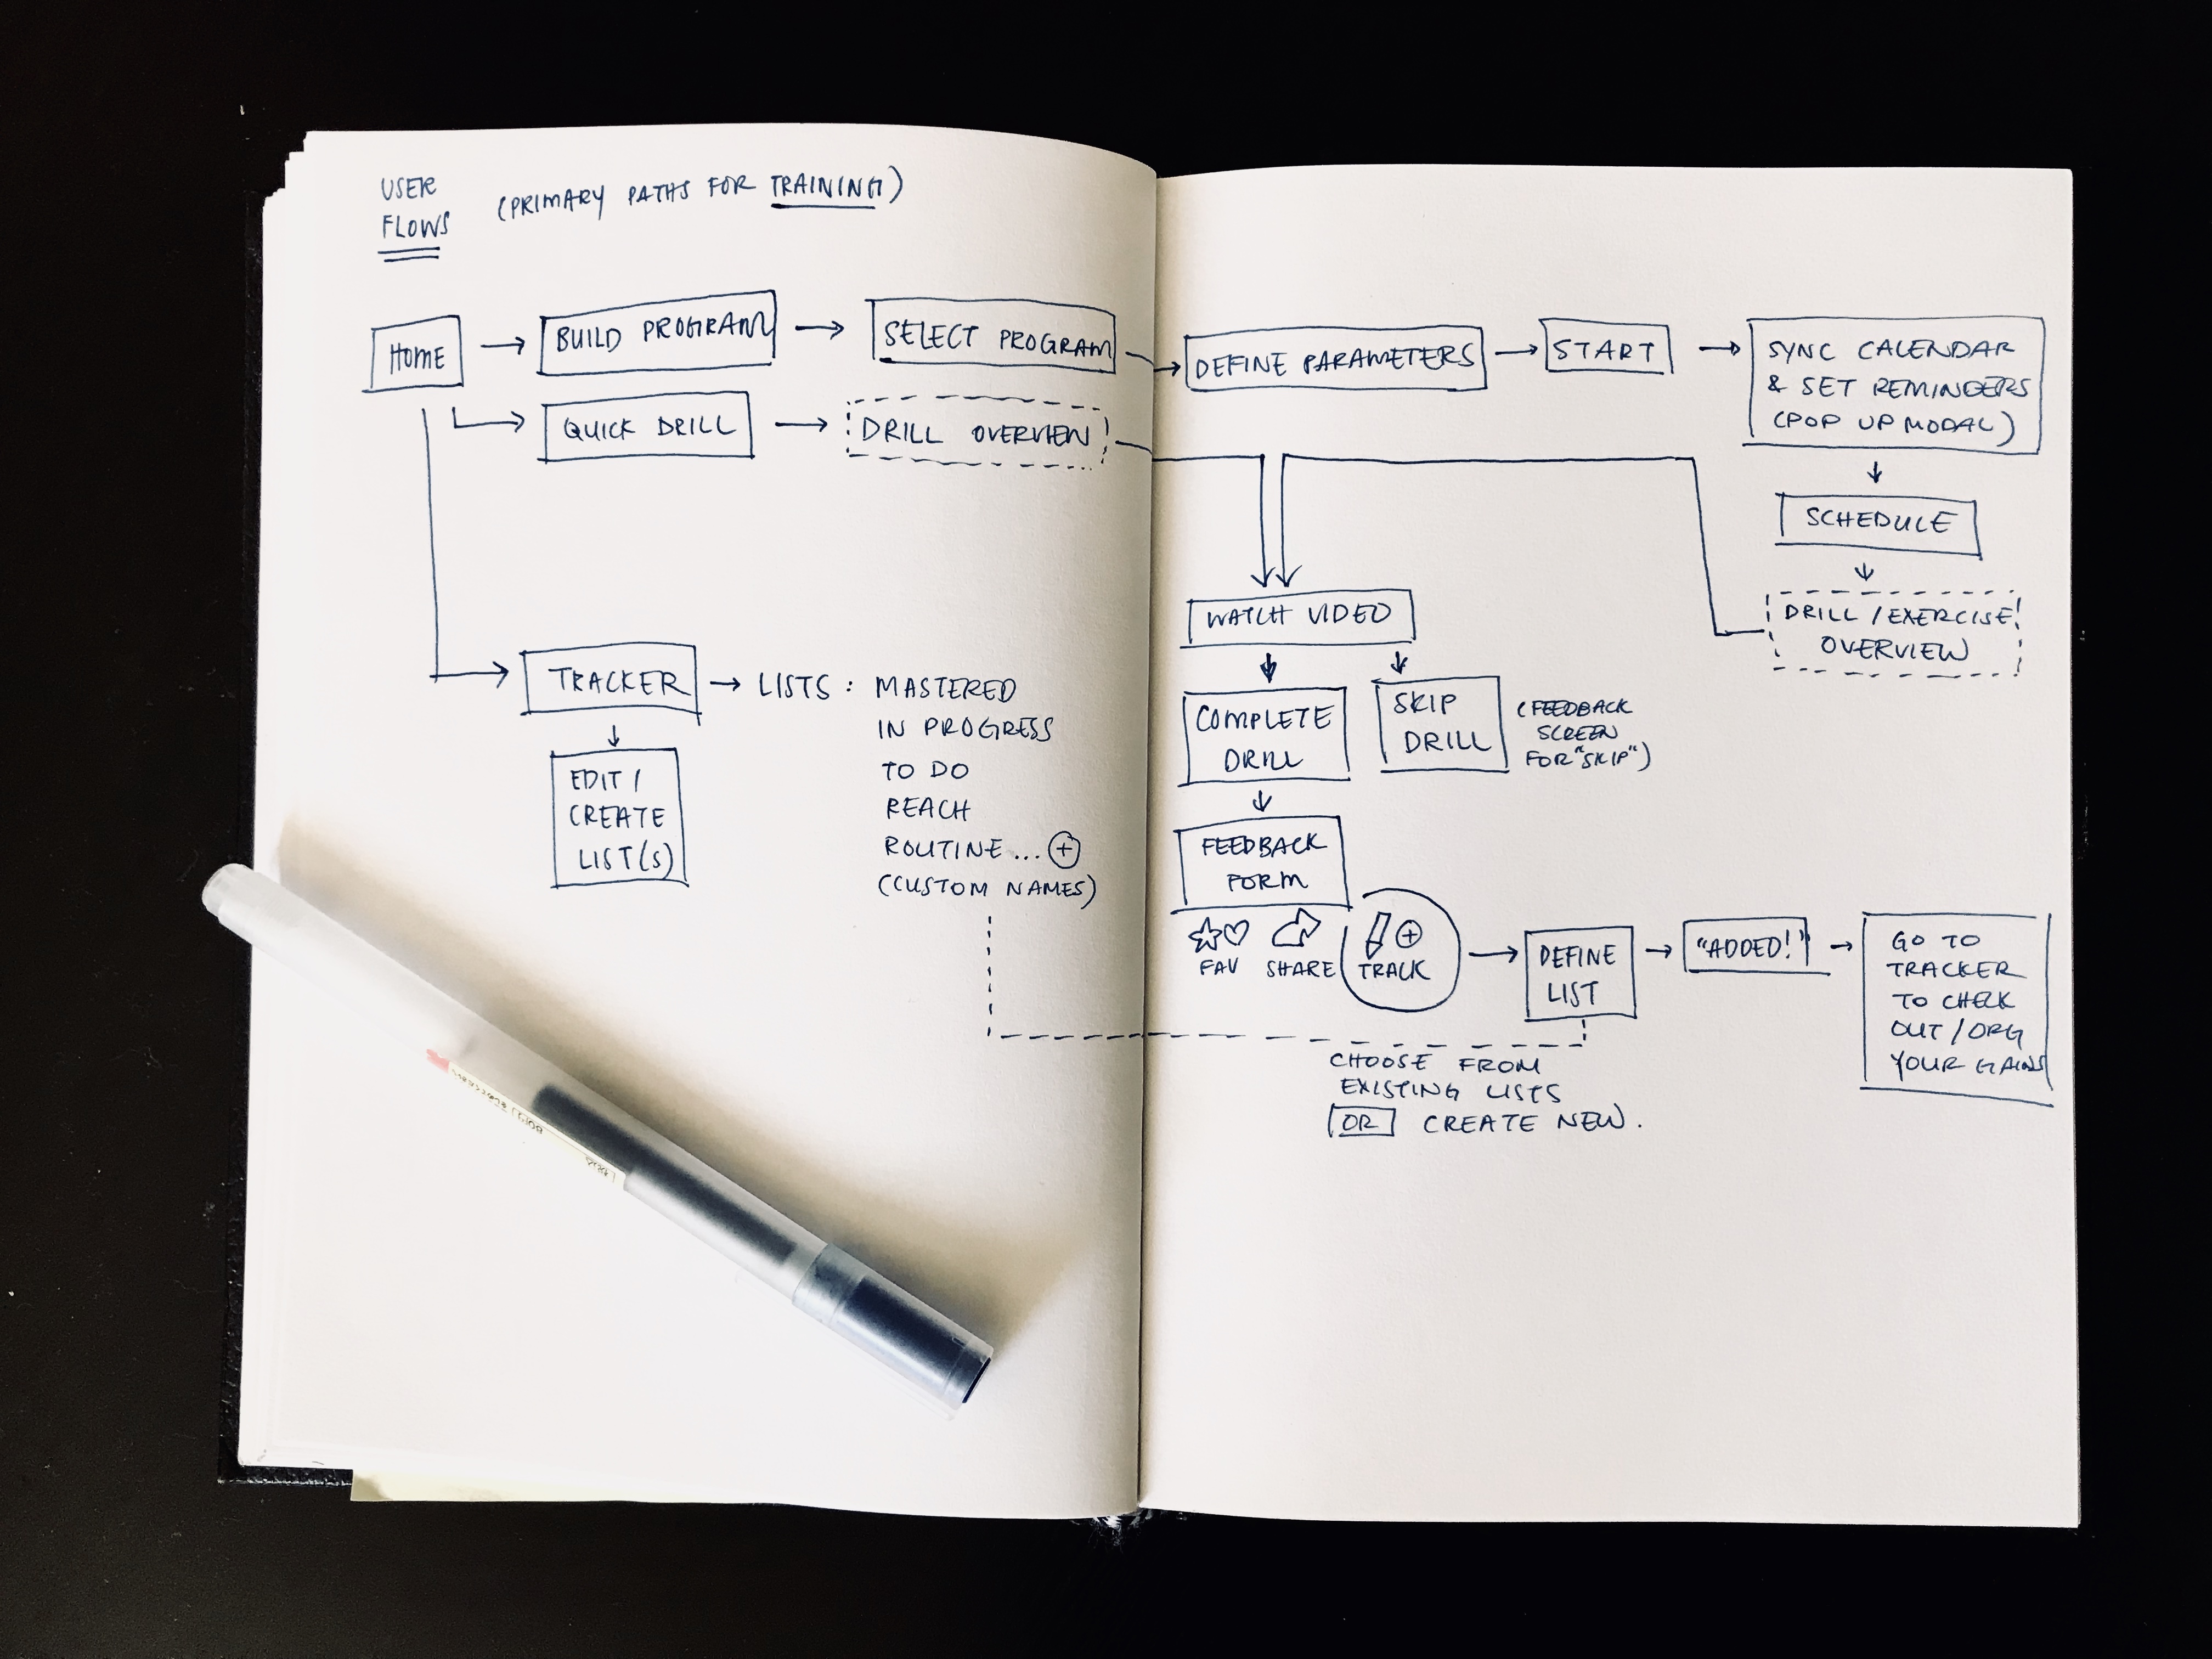 USER
FLOWS
(PRIMARY PATHS FOR TRAINING)
HOME
BUILD PROGRAM
SELECT PROGRAM
DEFINE PARAMETERS
START
SYNC CALENDAR
& SET REMINDERS
(POP UP MODAL)
QUICK DRILL
DRILL OVERVIEW
SCHEDULE
DRILL / EXERCISE
OVERVIEW
WATCH VIDEO
COMPLETE
DRILL
SKIP
DRILL
(FEEDBACK
SCREEN
FOR "SKIP")
TRACKER
LISTS : MASTERED
IN PROGRESS
TO DO
REACH
ROUTINE ... +
(CUSTOM NAMES)
EDIT /
CREATE
LIST(S)
FEEDBACK
FORM
FAV
SHARE
+
TRACK
DEFINE
LIST
"ADDED!"
GO TO
TRACKER
TO CHECK
OUT / ORG
YOUR GAINS
CHOOSE FROM
EXISTING LISTS
OR CREATE NEW.